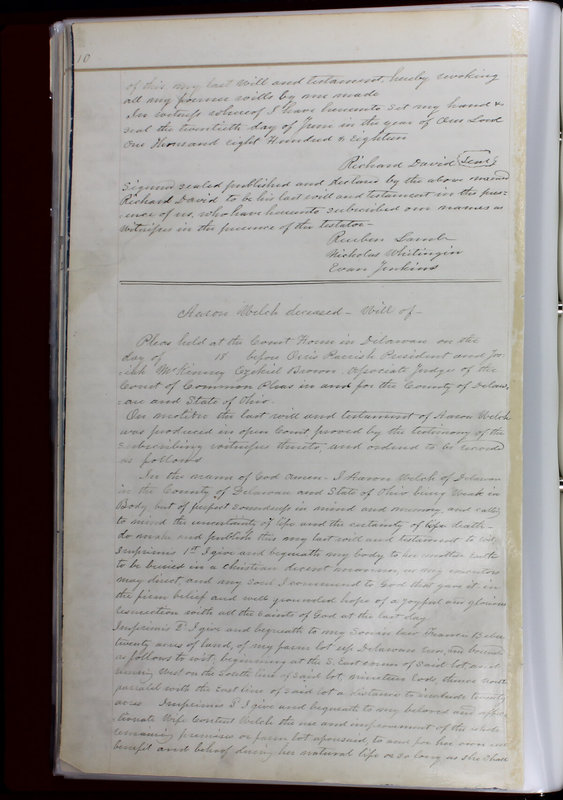 10
of this my last will and testament, hereby revoking
all my former wills by me made
In witness whereof I have hereunto set my hand &
seal the twentieth day of June in the year of Our Lord
One Thousand eight Hundred & Eighteen
Richard David Seal
Signed sealed published and declared by the above named
Richard David to be his last will and testament in the pres=
=ence of us, who have hereunto subscribed our names as
witnesses in the presence of the testator—
Reuben Lamb
Nicholas Whitingin
Evan Jenkins
Aaron Welch deceased — Will of —
Pleas held at the Court House in Delaware on the
day of 18 before Orris Parrish President and Jos-
=iah McKinney Ezekiel Brown Associate Judges of the
Court of Common Pleas in and for the County of Delaw,
=are and State of Ohio.
On motion the last will and testament of Aaron Welch
was produced in open Court, proved by the testimony of the
subscribing witnesses thereto, and ordered to be record
as follows
In the name of God Amen. I Aaron Welch of Delaware
in the County of Delaware and State of Ohio being Weak in
Body but of perfect soundness in mind and memory, and calling
to mind the uncertainty of life and the certainty of death—
do make and publish this my last will and testament to wit
Imprimis 1st I give and bequeath my body to her mother Earth
to be buried in a christian decent manner, as my executors
may direct and my Soul I commend to God that gave it in
the firm belief and well grounded hope of a joyful and glorious
resurrection with all the Saints of God at the last day
Imprimis 2d I give and bequeath to my Son in law
twenty acres of land, of my farm lot up Delaware run, and bounded
as follows to wit, beginning at the S. East corner of Said lot and
running West on the South line of Said lot, nineteen rods, thence north
parallel with the East line of said lot a distance to include twenty
acres Imprimis 3d I give and bequeath to my beloved and affec
=tionate Wife Content Welch the use and improvement of the whole
remaining premises or farm lot aforesaid, to and for her own use
benefit and behoof during her natural life or so long as she shall